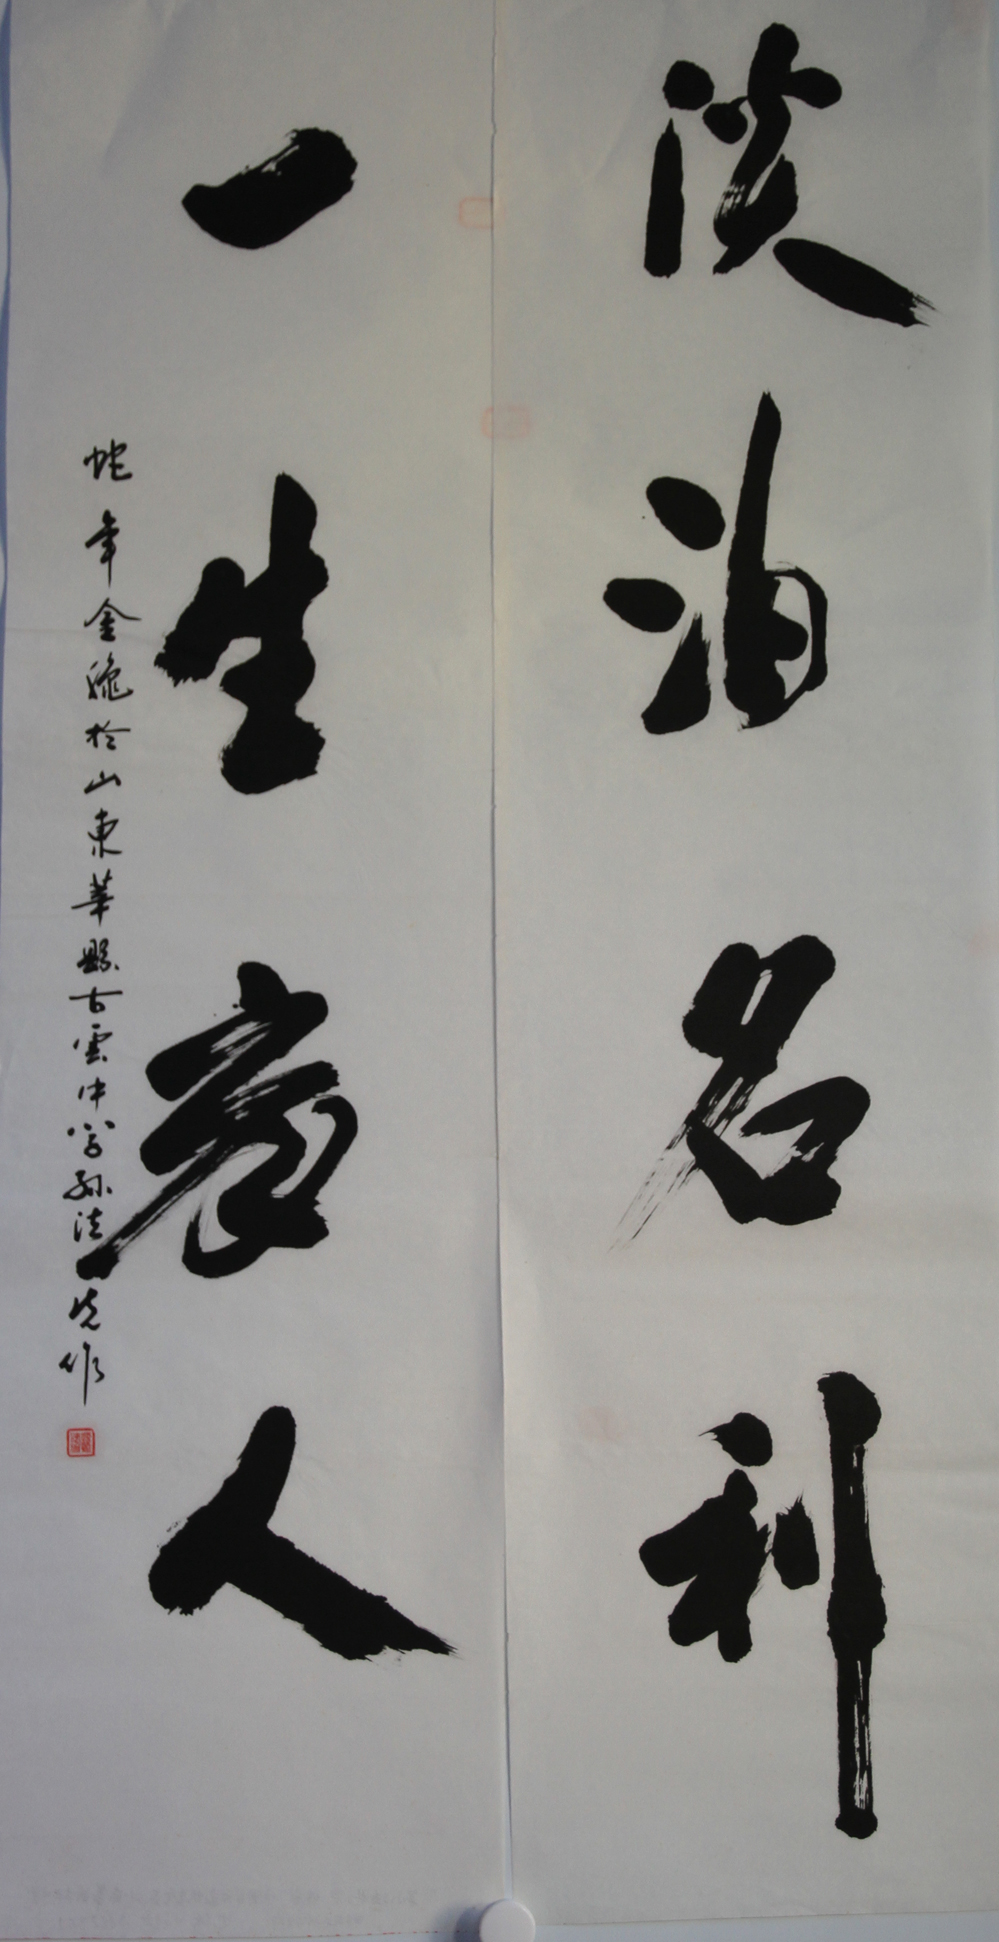 淡泊名利
一生育人
蛇年金穐於山東莘縣古雲中學孫法作